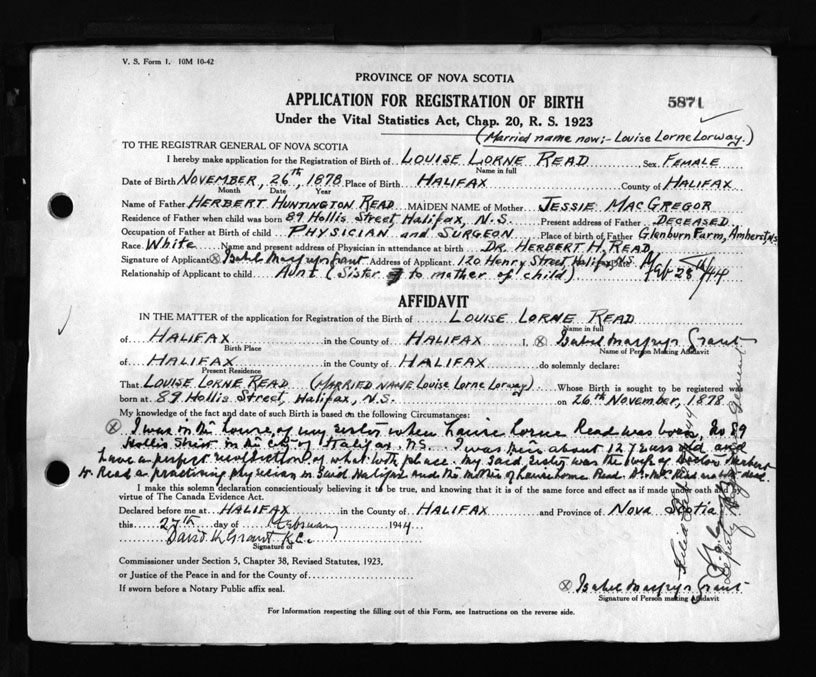 V. S. Form 1. 10M 10-42
PROVINCE OF NOVA SCOTIA
APPLICATION FOR REGISTRATION OF BIRTH
5871
Under the Vital Statistics Act, Chap. 20, R. S. 1923
(Married name now:- Louise Lorne Lorway.)
TO THE REGISTRAR GENERAL OF NOVA SCOTIA
I hereby make application for the Registration of Birth of LOUISE LORNE READ Sex FEMALE
Name in full
Date of Birth NOVEMBER, 26th, 1878 Place of Birth HALIFAX County of HALIFAX
Month Date Year
Name of Father HERBERT HUNTINGTON READ MAIDEN NAME of Mother JESSIE MACGREGOR
Residence of Father when child was born 89 Hollis Street Halifax, N.S. Present address of Father DECEASED
Occupation of Father at Birth of child PHYSICIAN and SURGEON Place of birth of Father Glenburn Farm, Amherst, N.S.
Race White Name and present address of Physician in attendance at birth DR. HERBERT H. READ
Signature of Applicant Isabel Grant Address of Applicant 120 Henry Street Halifax N.S. Feb 28th/44
Relationship of Applicant to child Aunt (Sister to mother of child)
AFFIDAVIT
IN THE MATTER of the application for Registration of the Birth of LOUISE LORNE READ
Name in full
of HALIFAX in the County of HALIFAX I, Isabel Grant
Birth Place Name of Person Making Affidavit
of HALIFAX in the County of HALIFAX do solemnly declare:
Present Residence
That LOUISE LORNE READ (MARRIED NAME Louise Lorne Lorway) Whose Birth is sought to be registered was
born at 89 Hollis Street, Halifax, N.S. on 26th November, 1878.
My knowledge of the fact and date of such Birth is based on the following Circumstances:
I was in the house, of my sister when Louise Lorne Read was born, No 89
Hollis Street in the City of Halifax N.S. I was then about 12 years old and
have a perfect recollection of what took place. My said sister was the wife of Doctor Herbert
H. Read a practising physician in said Halifax and the mother of Louise Lorne Read.
I make this solemn declaration conscientiously believing it to be true, and knowing that it is of the same force and effect as if made under oath and by
virtue of The Canada Evidence Act.
Declared before me at HALIFAX in the County of HALIFAX and Province of Nova Scotia
this 27th day of February 1944
David Grant K.C.
Signature of
Commissioner under Section 5, Chapter 38, Revised Statutes, 1923,
or Justice of the Peace in and for the County of
If sworn before a Notary Public affix seal.
Isabel Grant
Signature of Person making Affidavit
For Information respecting the filling out of this Form, see Instructions on the reverse side.